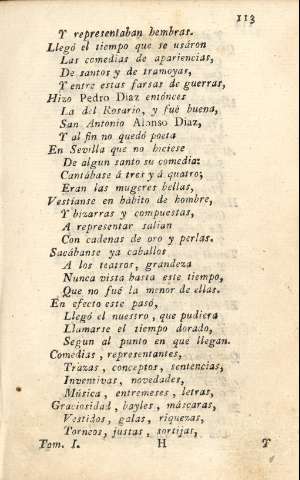 113
Y representaban hembras.
Llegó el tiempo que se usáron
Las comedias de apariencias,
De santos y de tramoyas,
Y entre estas farsas de guerras,
Hizo Pedro Diaz entónces
La del Rosario, y fué buena,
San Antonio Alonso Diaz,
Y al fin no quedó poeta
En Sevilla que no hiciese
De algun santo su comedia:
Cantábase á tres y á quatro;
Eran las mugeres bellas,
Vestíanse en hábito de hombre,
Y bizarras y compuestas,
A representar salian
Con cadenas de oro y perlas.
Sacábanse ya caballos
A los teatros, grandeza
Nunca vista hasta este tiempo,
Que no fué la menor de ellas.
En efecto este pasó,
Llegó el nuestro, que pudiera
Llamarse el tiempo dorado,
Segun al punto en que llegan.
Comedias, representantes,
Trazas, conceptos, sentencias,
Inventivas, novedades,
Música, entremeses, letras,
Graciosidad, bayles, máscaras,
Vestidos, galas, riquezas,
Torneos, justas, sortijas,
Tom. I. H Y